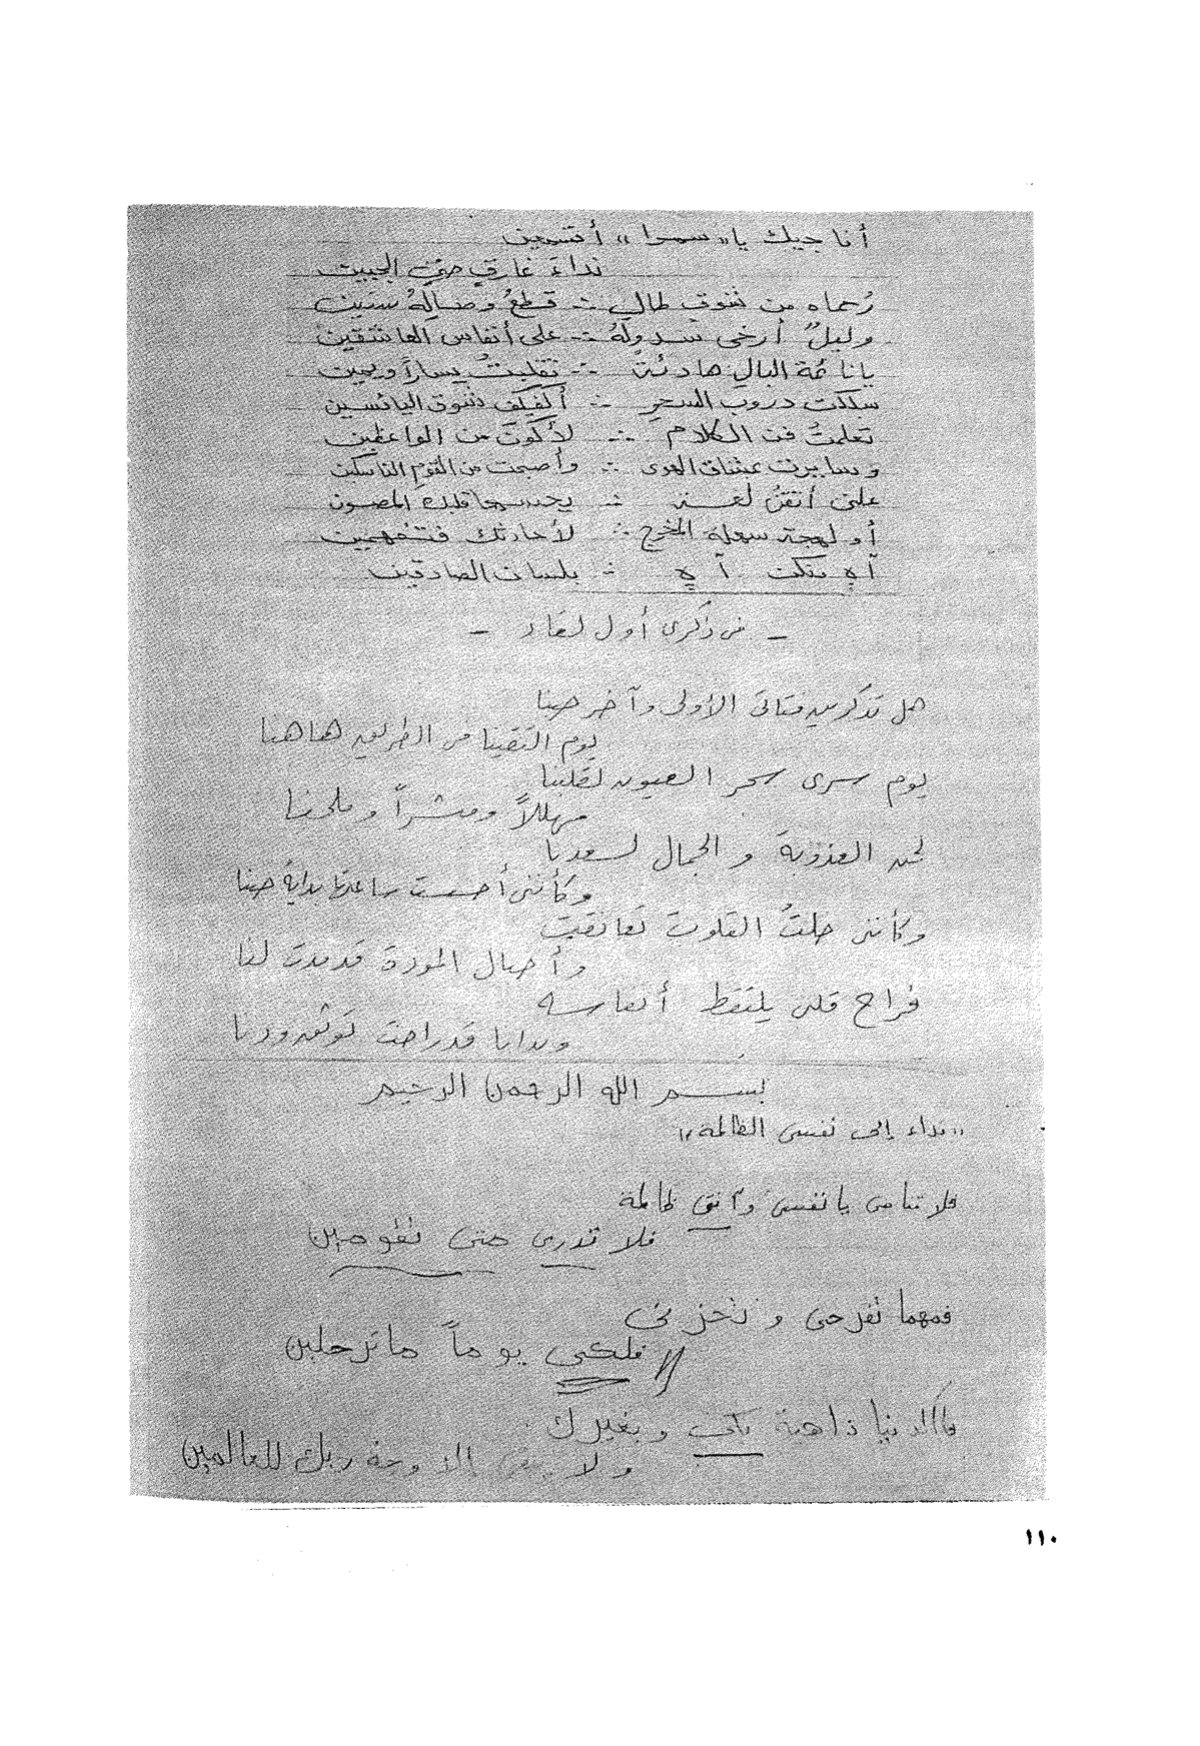 أناجيك يا «سمرا» أتسمعين
نداءَ غارقٍ الجبين
رُحماه من شوق طال ∴ قطعُ وصالِهُ سنين
وليلٌ أرخى سدولَهُ ∴ على أنفاس العاشقين
يا نائمة البالِ هادئة ∴ تقلبتُ يساراً ويمين
سلكت دروب السحرِ ∴ أكفكف شوق اليائسين
تعلمتُ فن الكلام ∴ لأكونَ من الواعظين
وسايرت عشاق الهوى ∴ وأصبحت من القوم الناسكين
علني أتقنُ لغة ∴ يحسها قلبك المصون
أو لهجة سهلة المخرج ∴ لأحادثك فتفهمين
آهٍ منك آهٍ ∴ بلسان الصادقين
- من ذكرى أول لقاء -
هل تذكرين فتاتي الأولى وآخر حبنا
يوم التقينا في الطريق هاهنا
يوم سرى سحر العيون لقلبنا
مهللاً ومبشراً وملحنا
لحن العذوبة والجمال لسعدنا
وكأنني أحسست ساعتها بداية حبنا
وكأنني خلتُ القلوب تعانقت
وأحبال المودة قد مدت لنا
فراح قلبي يلتقط أنفاسه
ويدانا قد راحت توثق ودنا
بسم الله الرحمن الرحيم
«نداء إلى نفسي الظالمة»
فلا تنامي يا نفسي وأنتي ظالمة
فلا تدري متى تفوحين
فمهما تفرحي وتحزني
فلكي يوماً ما ترحلين
فالدنيا ذاهبة بكي وبغيرك
ولا يبقى إلا وجه ربك للعالمين
١١٠